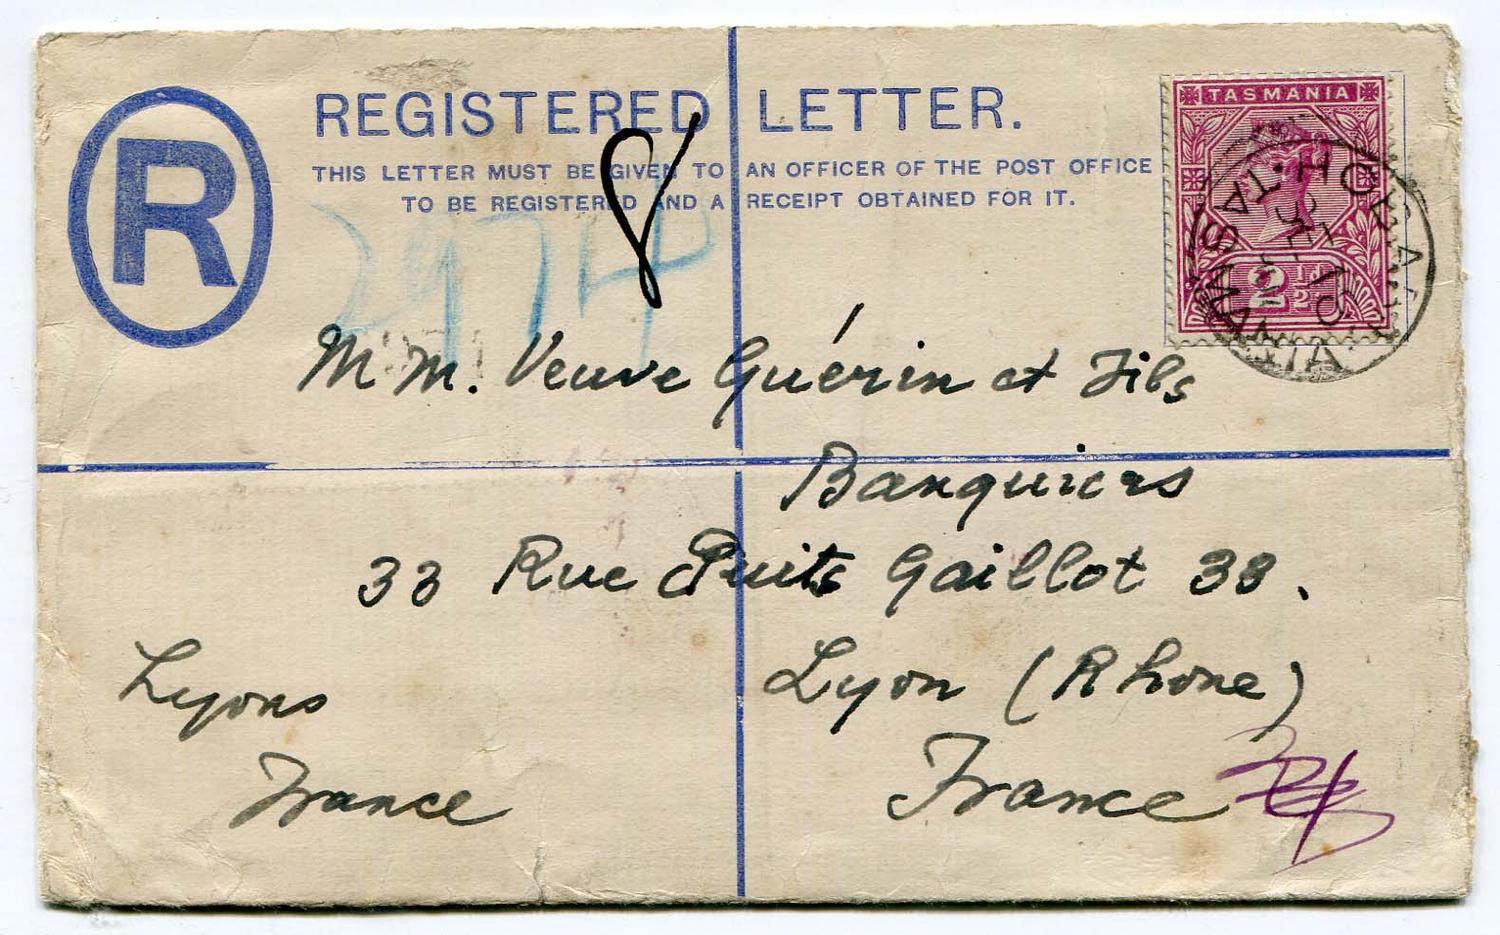 R
REGISTERED LETTER.
THIS LETTER MUST BE GIVEN TO AN OFFICER OF THE POST OFFICE
TO BE REGISTERED AND A RECEIPT OBTAINED FOR IT.
TASMANIA
2½d
HOBART
TASMANIA
8
2974
M.M. Veuve Guérin et Fils
Banquiers
33 Rue Puits Gaillot 33.
Lyon (Rhone)
France
Lyons
France